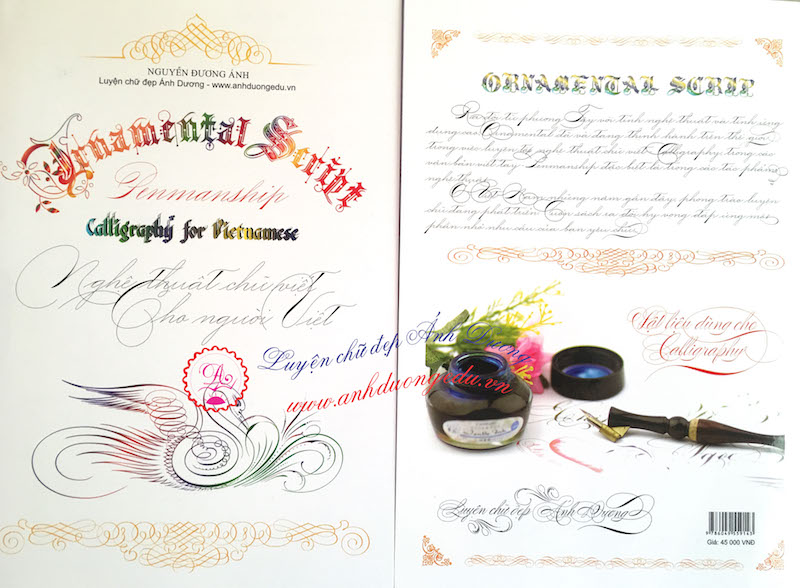 NGUYỄN ĐƯƠNG ÁNH
Luyện chữ đẹp Ánh Dương - www.anhduongedu.vn
Ornamental Script
Penmanship
Calligraphy for Vietnamese
Nghệ thuật chữ viết
Cho người Việt
Luyện chữ đẹp Ánh Dương
www.anhduongedu.vn
ORNAMENTAL SCRIP
Ra đời từ phương Tây với tính nghệ thuật và tính ứng
dụng cao Ornamental đã và đang thịnh hành trên thế giới
trong việc luyện tập nghệ thuật chữ viết Calligraphy, trong các
văn bản viết tay Penmanship đặc biệt là trong các tác phẩm
nghệ thuật.
Ở Việt Nam những năm gần đây, phong trào luyện
chữ đang phát triển. Cuốn sách ra đời hy vọng đáp ứng một
phần nhỏ nhu cầu của bạn yêu chữ.
Vật liệu dùng cho
Calligraphy
Luyện chữ đẹp Ánh Dương
9 786049 559143
Giá: 45 000 VNĐ